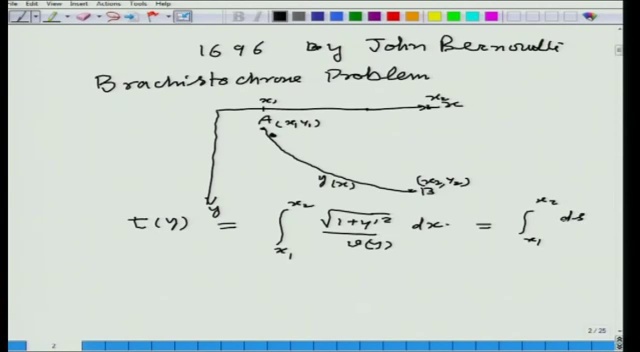 Edit View Insert Actions Tools Help
1696 by John Bernoulli
Brachistochrone Problem
x₁ x₂ x
A(x₁,y₁)
y(x) (x₂,y₂)
B
y
t(y) = ∫ₓ₁ˣ² √(1+y'²)/v(y) dx. = ∫ₓ₁ˣ² ds
2/25
2